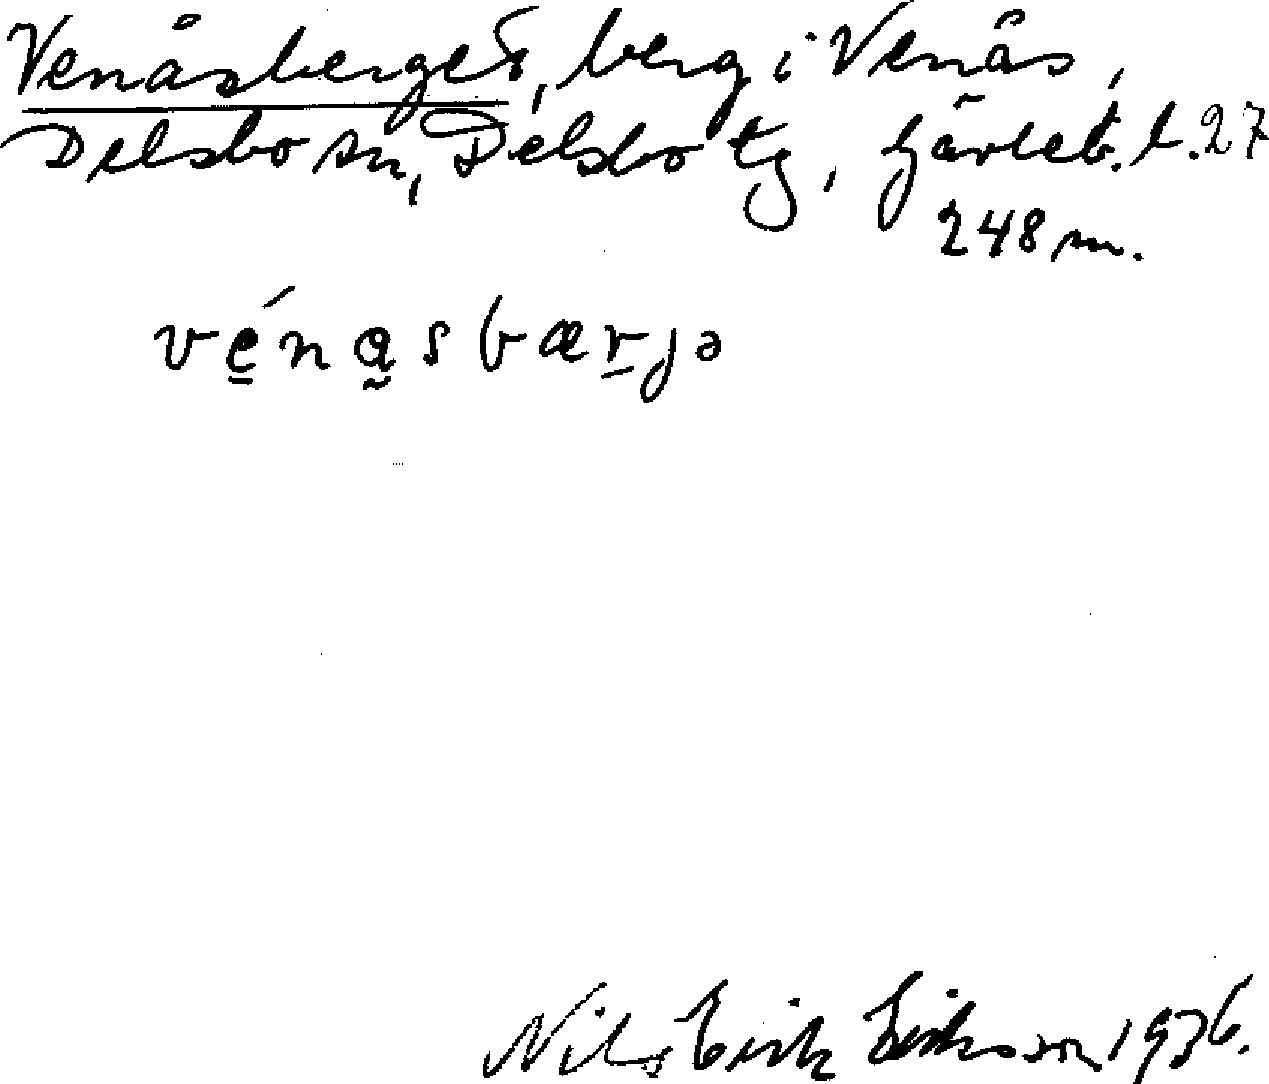 Venåsberget, berg i Venås,
Delsbo sn, Delsbo tg, Gävleb. l. 27
248 m.
vé̲na̰sbær̲jə
Nils Erik Eriksson 1936.